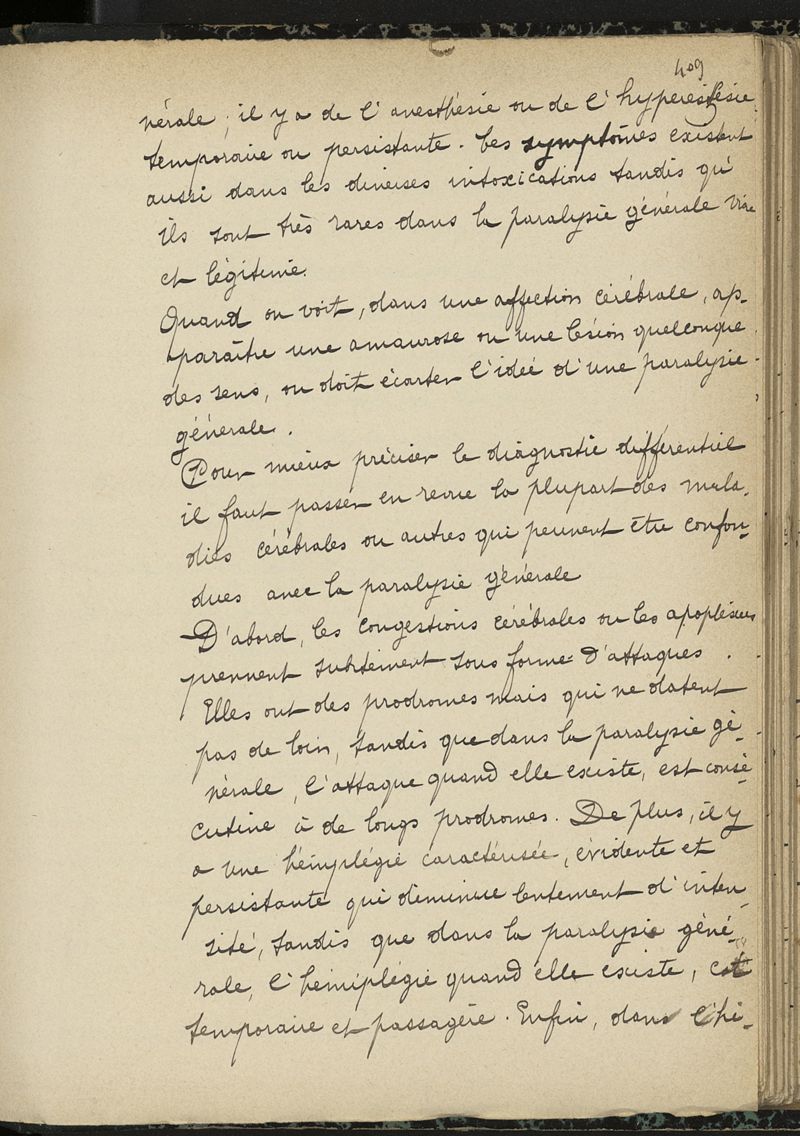 409
nérale ; il y a de l'anesthésie ou de l'hyperesthésie
temporaire ou persistante. Ces symptômes existent
aussi dans les diverses intoxications tandis qu'
ils sont très rares dans la paralysie générale vraie
et légitime.
Quand on voit, dans une affection cérébrale, ap-
paraître une amaurose ou une lésion quelconque
des sens, on doit écarter l'idée d'une paralysie
générale.
Pour mieux préciser le diagnostic différentiel
il faut passer en revue la plupart des mala-
dies cérébrales ou autres qui peuvent être confon-
dues avec la paralysie générale
D'abord, les congestions cérébrales ou les apoplexies
prennent subitement sous forme d'attaques.
Elles ont des prodromes mais qui ne datent
pas de loin, tandis que dans la paralysie gé-
nérale, l'attaque quand elle existe, est consé-
cutive à de longs prodromes. De plus, il y
a une hémiplégie caractérisée, évidente et
persistante qui diminue lentement d'inten-
sité, tandis que dans la paralysie géné-
rale, l'hémiplégie quand elle existe, est
temporaire et passagère. Enfin, dans l'hé-